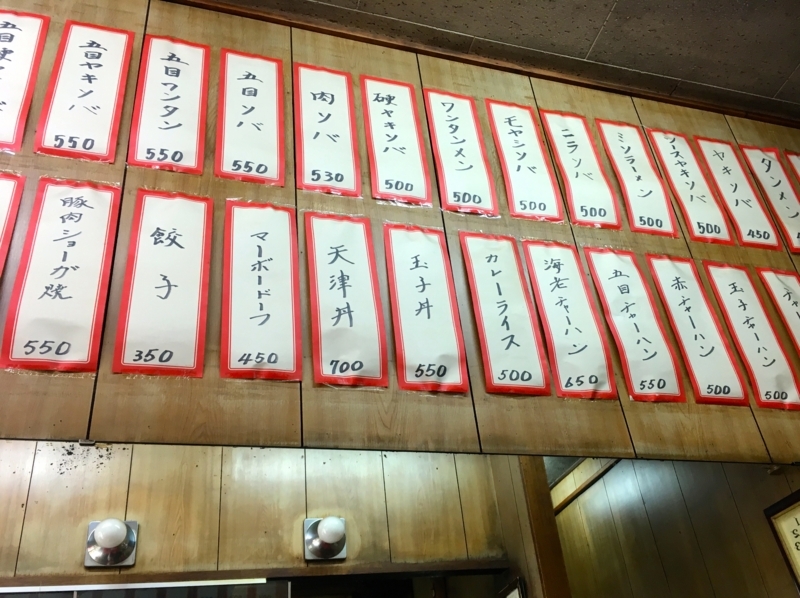 五目
五目ヤキソバ
550
五目ワンタン
550
五目ソバ
550
肉ソバ
530
硬ヤキソバ
500
ワンタンメン
500
モヤシソバ
500
ニラソバ
500
ミソラーメン
500
ソースヤキソバ
500
ヤキソバ
450
タンメン
豚肉ショーガ焼
550
餃子
350
マーボードーフ
450
天津丼
700
玉子丼
550
カレーライス
500
海老チャーハン
650
五目チャーハン
550
赤チャーハン
500
玉子チャーハン
500